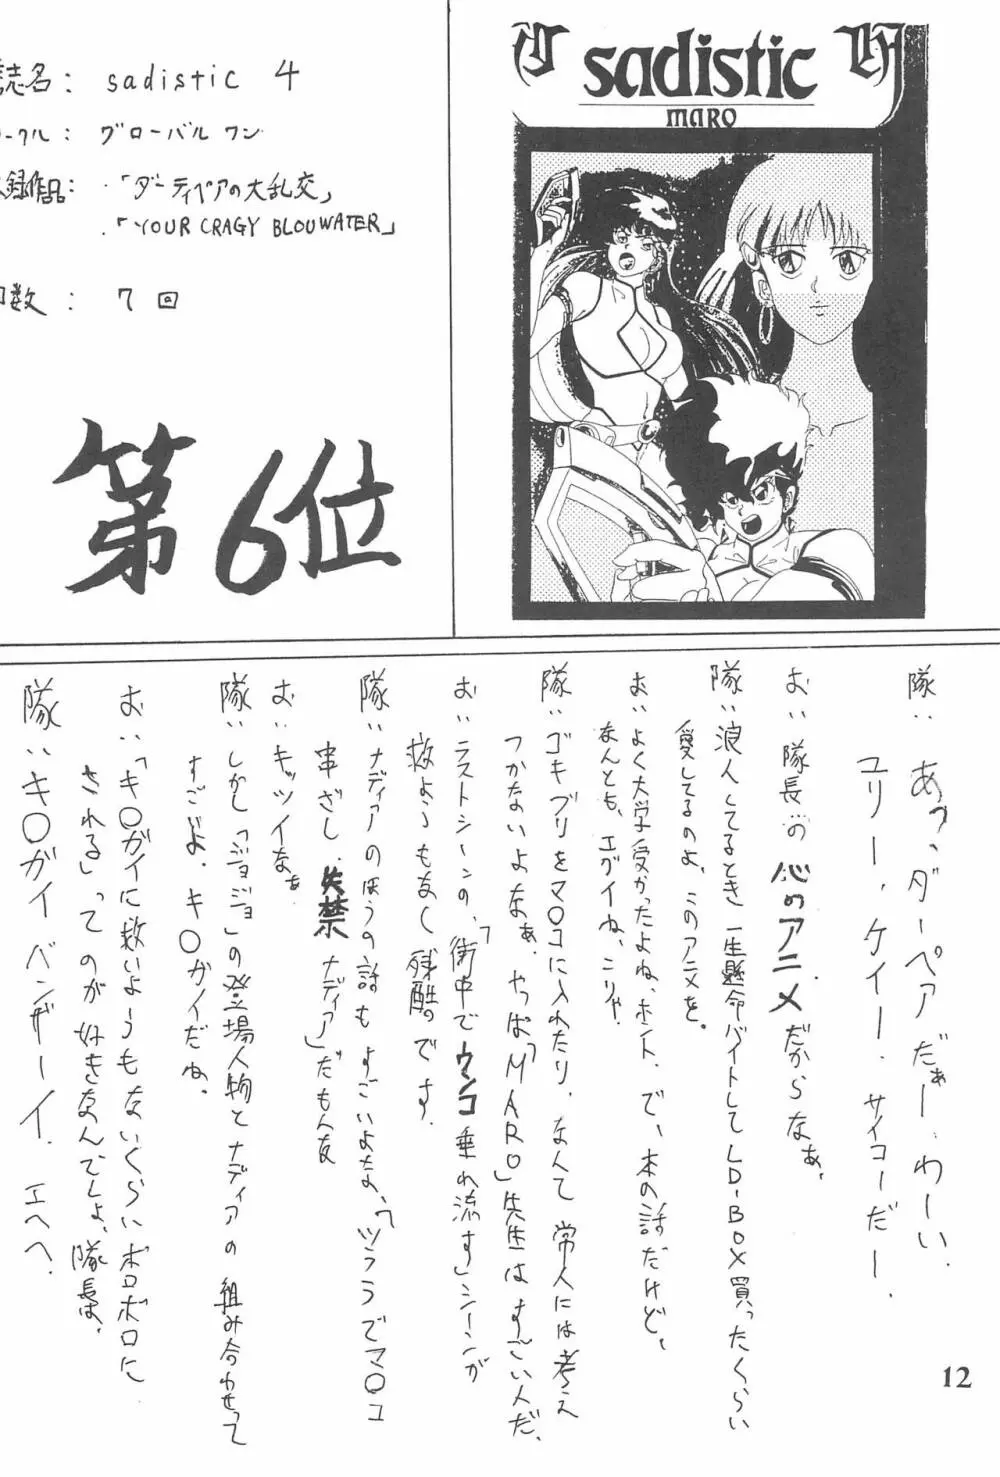 誌名： sadistic 4
ークル： グローバルワン
録作品： ・「ダーティペアの大乱交」
・「YOUR CRAGY BLOUWATER」
回数 ： 7回
第6位
sadistic
MARO
隊‥ あっ、ダーペアだぁー。わーい。
ユリー、ケイー、サイコーだー。
お‥ 隊長の心のアニメだからなぁ。
隊‥ 浪人してるとき一生懸命バイトしてLD-BOX買ったくらい
愛してるのよ、このアニメを。
お‥ よく大学受かったよね、ホント。で、本の話だけど、
なんとも、エグイね、こりゃ。
隊‥ ゴキブリをマ○コに入れたり、なんて常人には考え
つかないよなぁ。やっぱ「MARO」先生はすごい人だ。
お‥ ラストシーンの、「街中でウンコ垂れ流す」シーンが
救いようもなく残酷です。
お‥ キツイなぁ
隊‥ しかし「ジョジョ」の登場人物とナディアの組み合わせて
すごいよ。キ○ガイだね。
お‥「キ○ガイに救いようもないくらいボロボロに
される」ってのが好きなんでしょ、隊長は。
隊‥ キ○ガイバンザーイ。エヘヘ。
12